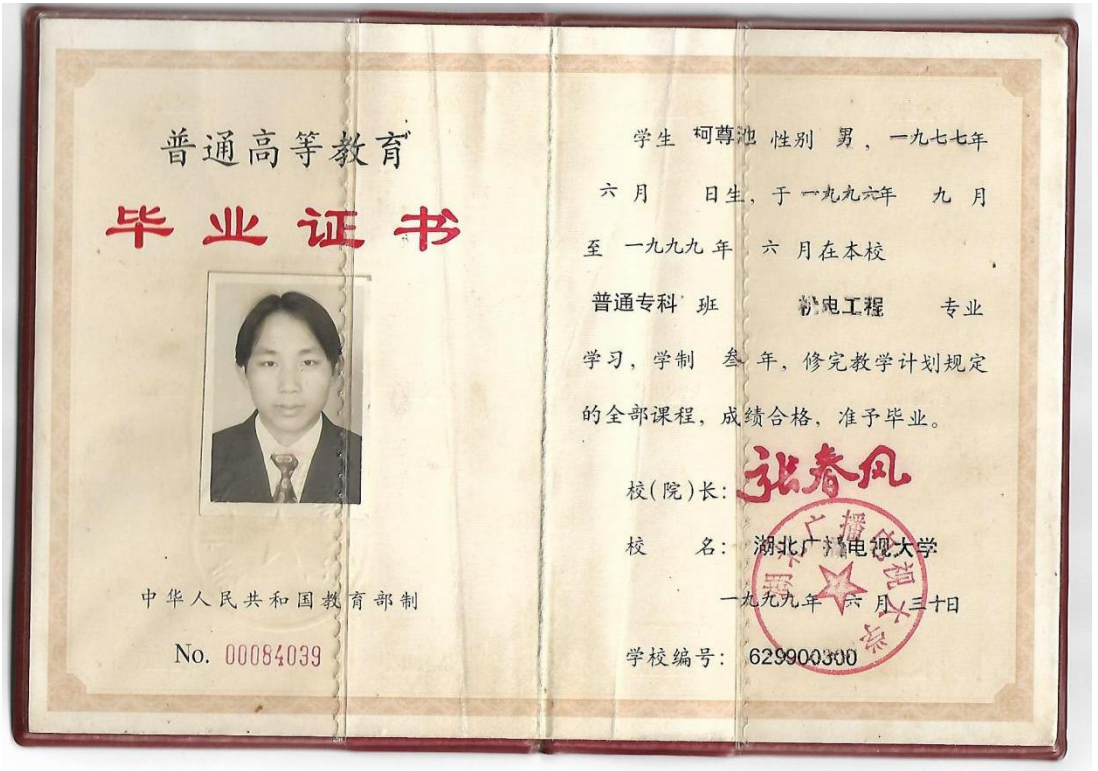 普通高等教育
毕业证书
中华人民共和国教育部制
No. 00084039
学生 柯尊池 性别 男，一九七七年
六月 日生，于一九九六年 九月
至 一九九九年 六月在本校
普通专科 班 机电工程 专业
学习，学制 叁年，修完教学计划规定
的全部课程，成绩合格，准予毕业。
校(院)长：张春风
校 名：湖北广播电视大学
一九九九年 六月三十日
学校编号：629900300
湖北广播电视大学